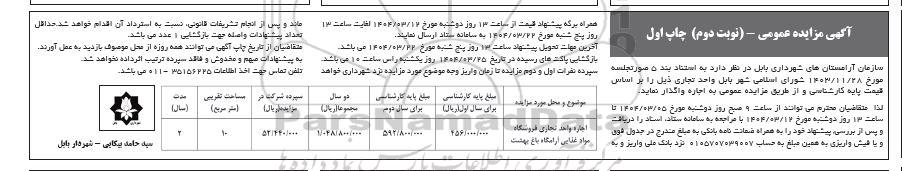 آگهی مزایده عمومی – (نوبت دوم) چاپ اول
سازمان آرامستان های شهرداری بابل در نظر دارد به استناد بند ۵ صورتجلسه
مورخ ۱۴۰۳/۱۱/۲۸ شورای اسلامی شهر بابل واحد تجاری ذیل را بر اساس
قیمت پایه کارشناسی و از طریق مزایده عمومی به اجاره واگذار نماید.
لذا متقاضیان محترم می توانند از ساعت ۹ صبح روز دوشنبه مورخ ۱۴۰۴/۰۳/۰۵ تا
ساعت ۱۳ روز دوشنبه مورخ ۱۴۰۴/۰۳/۱۲ با مراجعه به سامانه ستاد، اسناد را دریافت
و پس از بررسی، پیشنهاد خود را به همراه ضمانت نامه بانکی به مبلغ مندرج در جدول فوق
و یا فیش واریزی به همین مبلغ به حساب ۰۱۰۵۷۰۷۰۳۹۰۰۷ نزد بانک ملی واریز و به
همراه برگه پیشنهاد قیمت از ساعت ۱۳ روز دوشنبه مورخ ۱۴۰۴/۰۳/۱۲ لغایت ساعت ۱۳
روز پنج شنبه مورخ ۱۴۰۴/۰۳/۲۲ به سامانه ستاد ارسال نمایند.
آخرین مهلت تحویل پیشنهاد ساعت ۱۳ روز پنج شنبه مورخ ۱۴۰۴/۰۳/۲۲ می باشد.
بازگشایی پاکت های رسیده در تاریخ ۱۴۰۴/۰۳/۲۵ روز یکشنبه راس ساعت ۱۰ می باشد.
سپرده نفرات اول و دوم مزایده تا زمان واریز وجه موضوع مورد مزایده نزد شهرداری خواهد
ماند و پس از انجام تشریفات قانونی، نسبت به استرداد آن اقدام خواهد شد.حداقل
تعداد پیشنهادات واصله جهت بازگشایی ۱ عدد می باشد.
متقاضیان از تاریخ چاپ آگهی می توانند همه روزه از محل موصوف بازدید به عمل آورند.
به پیشنهادات مبهم و مخدوش و فاقد سپرده ترتیب اثرداده نخواهد شد.
تلفن تماس جهت اخذ اطلاعات ۳۵۱۵۶۲۲۵-۰۱۱ می باشد.
موضوع و محل مورد مزایده | مبلغ پایه کارشناسی برای سال اول(ریال) | مبلغ پایه کارشناسی برای سال دوم | دو سال مجموعا(ریال) | سپرده شرکت در مزایده(ریال) | مساحت تقریبی (متر مربع) | مدت (سال)
اجاره واحد تجاری فروشگاه مواد غذایی آرامگاه باغ بهشت | ۴۵۶/۰۰۰/۰۰۰ | ۵۹۲/۸۰۰/۰۰۰ | ۱/۰۴۸/۸۰۰/۰۰۰ | ۵۲/۴۴۰/۰۰۰ | ۱۰ | ۲
سید حامد بیکایی – شهردار بابل
ParsNamadData